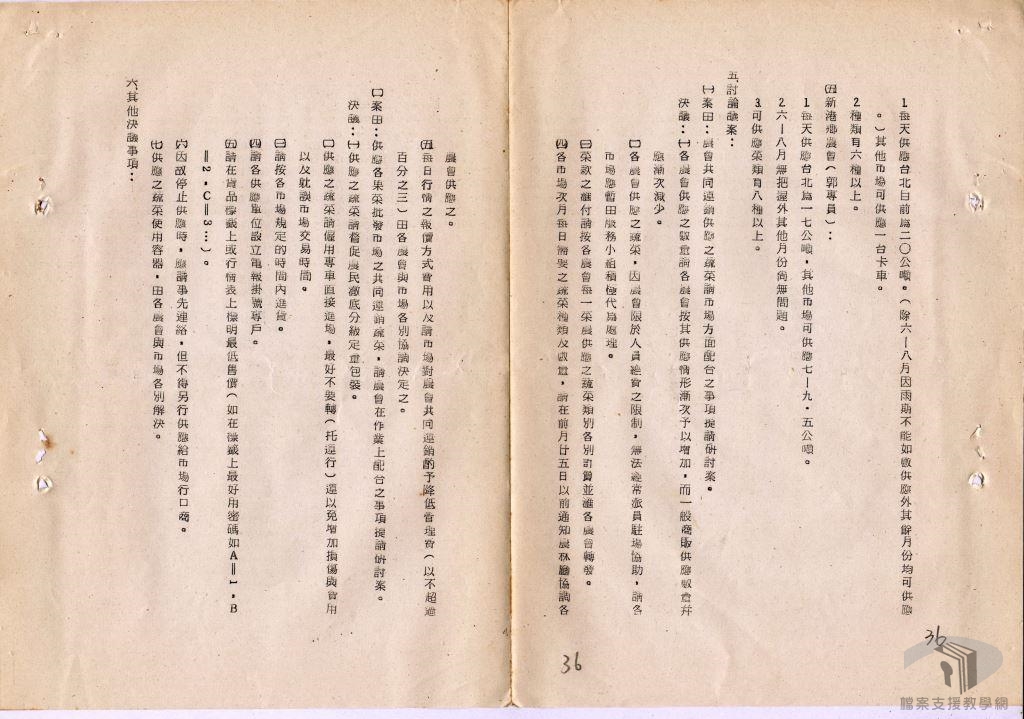 1 每天供應台北目前為二〇公噸。（除六—八月因雨期不能如數供應外其餘月份均可供應
。）其他市場可供應一台卡車。
2 種類有六種以上。
㈤新港鄉農會（郭專員）：
1 每天供應台北為一七公噸，其他市場可供應七—九•五公噸。
2 六—八月無把握外其他月份尚無問題。
3 可供應菜類有八種以上。
五、討論議案：
㈠案由：農會共同運銷供應之蔬菜請市場方面配合之事項提請研討案。
決議：㈠各農會供應之數量請各農會按其供應情形漸次予以增加，而一般商販供應數量弁
應漸次減少。
㈡各農會供應之蔬菜，因農會限於人員經費之限制，無法經常派員駐場協助，請各
市場應暫由服務小組積極代為處理。
㈢菜款之滙付請按各農會每一菜農供應之蔬菜類別各別計算並滙各農會轉發。
㈣各市場次月每日需要之蔬菜種類及數量，請在前月廿五日以前通知農林廳協調各
36
36
農會供應之。
㈤每日行情之報價方式費用以及請市場對農會共同運銷酌予降低管理費（以不超過
百分之三）由各農會與市場各別協調決定之。
㈡案由：供應各果菜批發市場之共同運銷蔬菜，請農會在作業上配合之事項提請研討案。
決議：㈠供應之蔬菜請督促農民澈底分級定量包裝。
㈡供應之蔬菜請僱用專車直接進場，最好不要轉（托運行）運以免增加損傷與費用
以及躭誤市場交易時間。
㈢請按各市場規定的時間內進貨。
㈣請各供應單位設立電報掛號專戶。
㈤請在貨品標籤上或行情表上標明最低售價（如在標籤上最好用密碼如A‖1，B
‖2，C‖3…）。
㈥因故停止供應時，應請事先連絡，但不得另行供應給市場行口商。
㈦供應之蔬菜使用容器，由各農會與市場各別解決。
六、其他決議事項：
檔案支援教學網